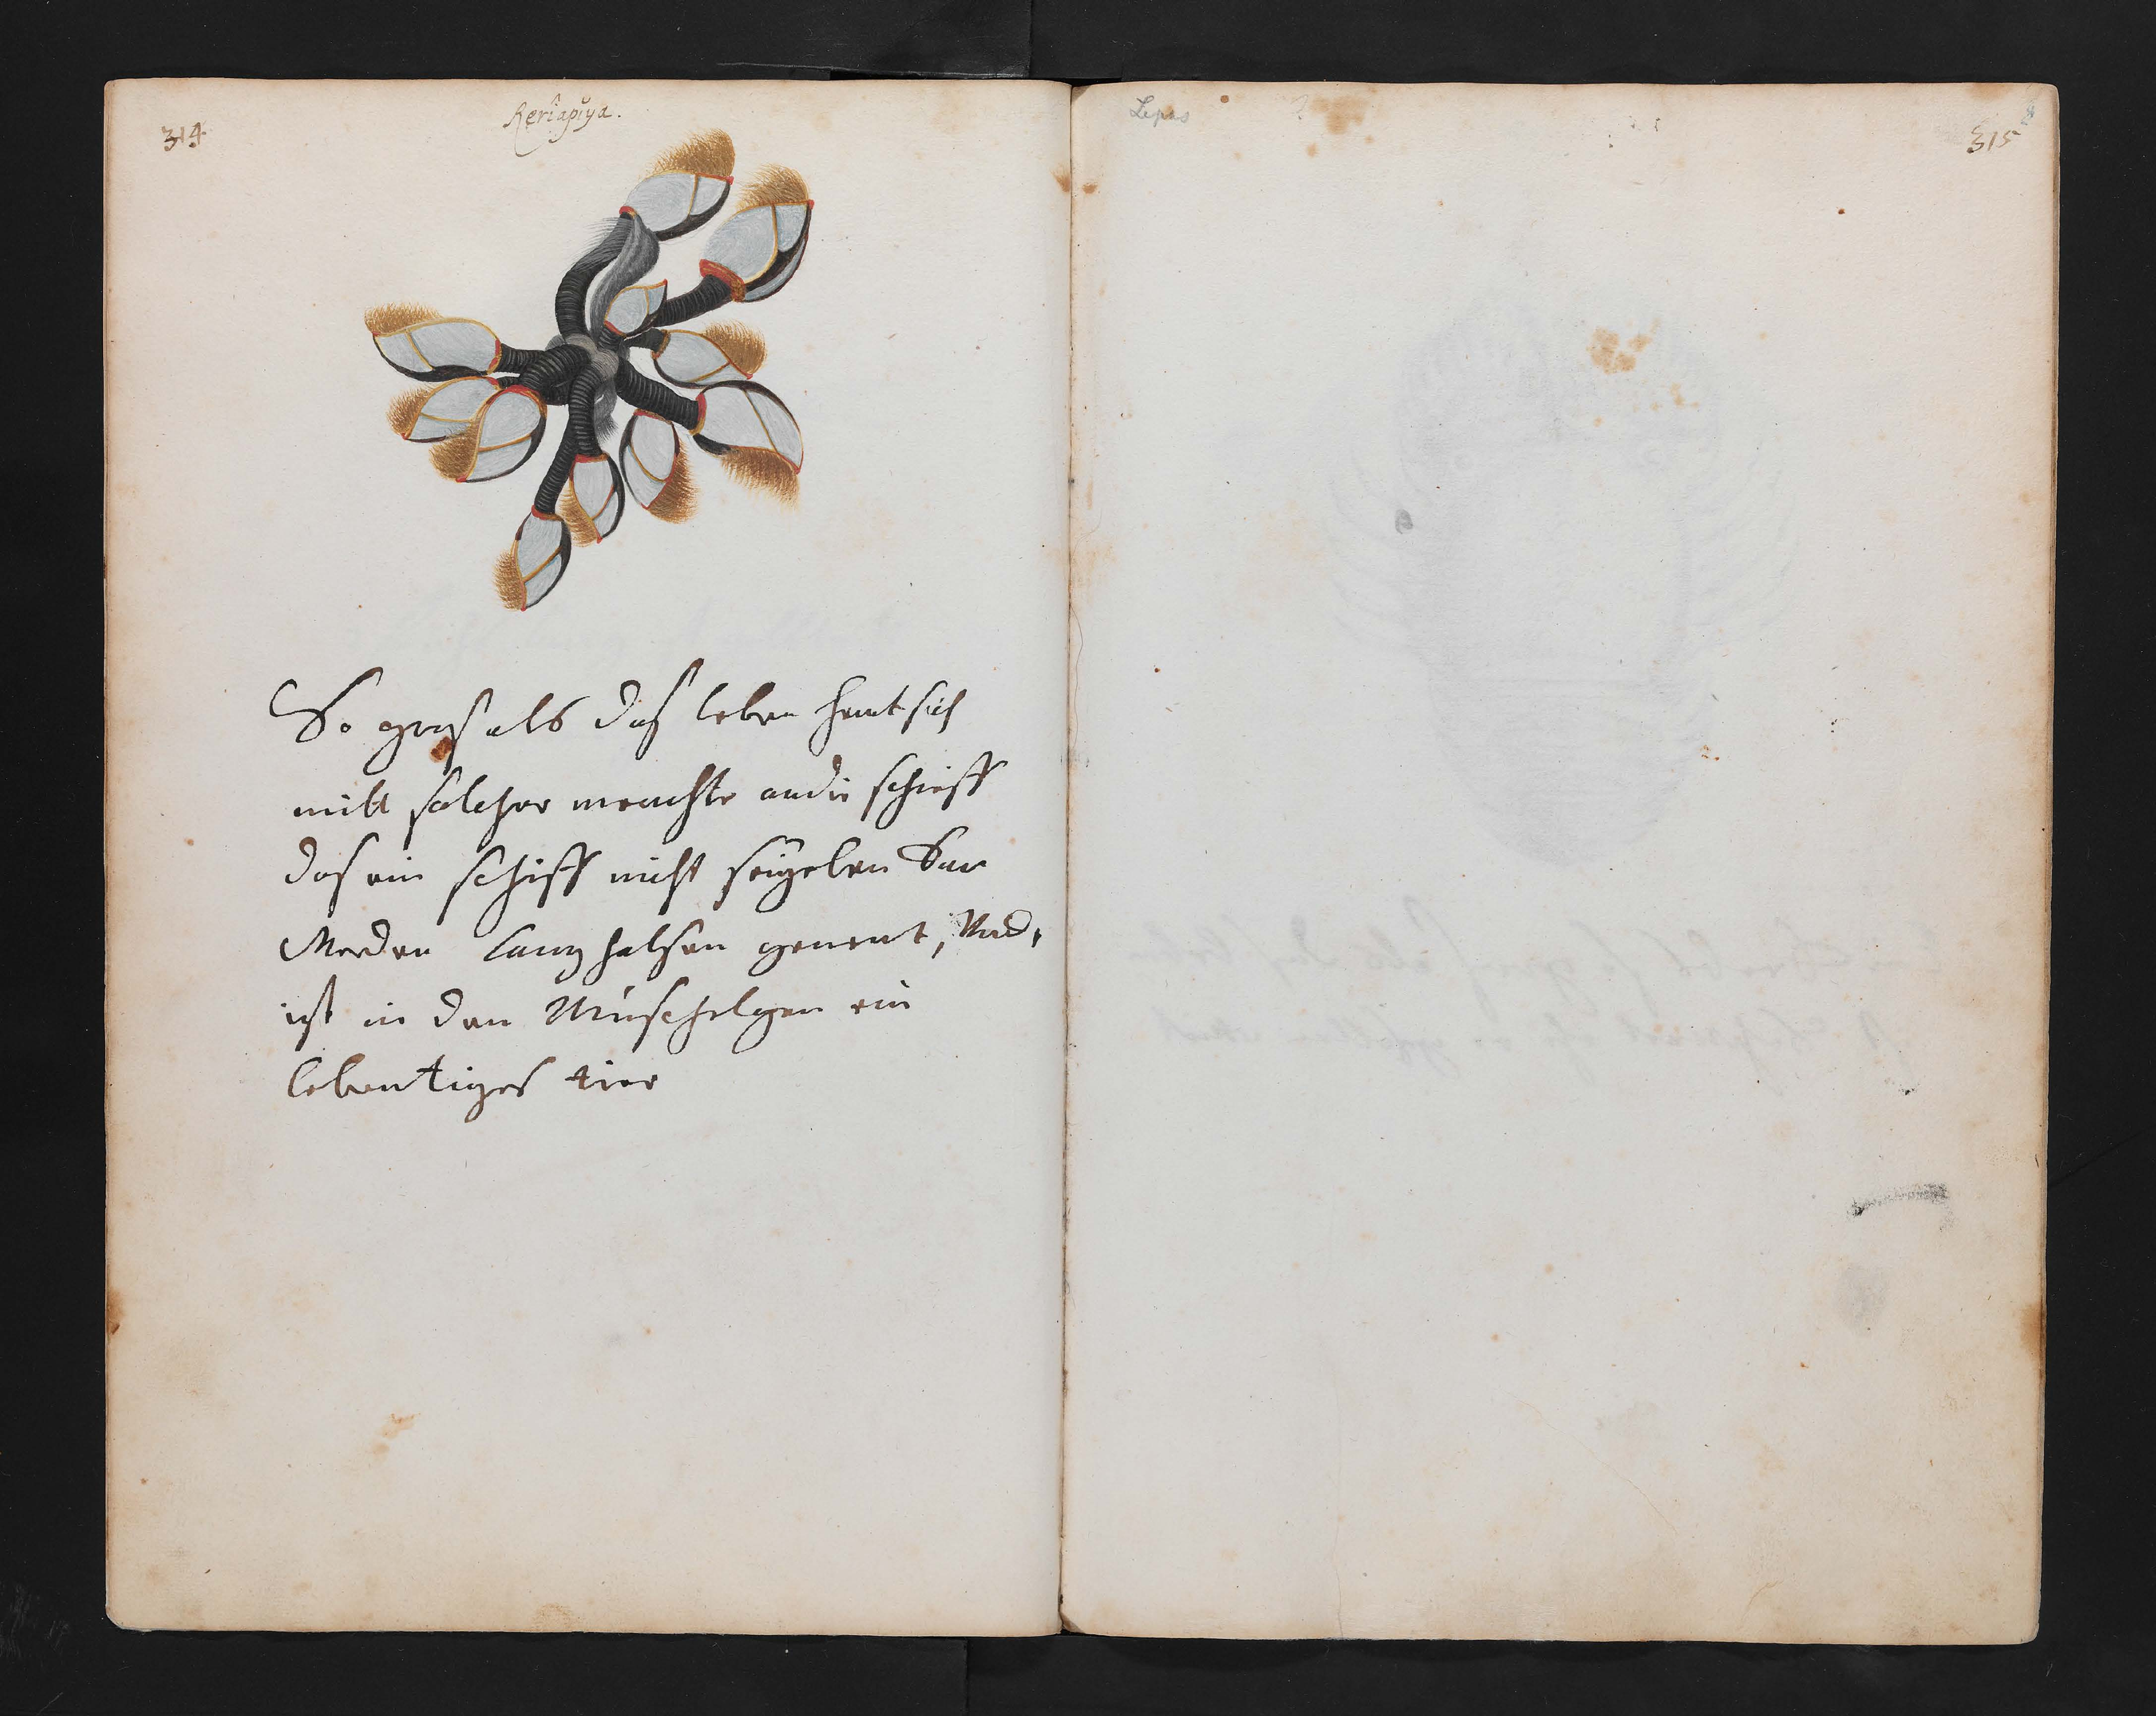 314
Reriapiya.
So gros als das leben henkt sich
mitt solcher menchte an die schieff
das ein schiff nicht seigelen kan
Werden Lang halsen genent, Und,
ist in den Muschelgen ein
lebentiges tier
Lepas
315